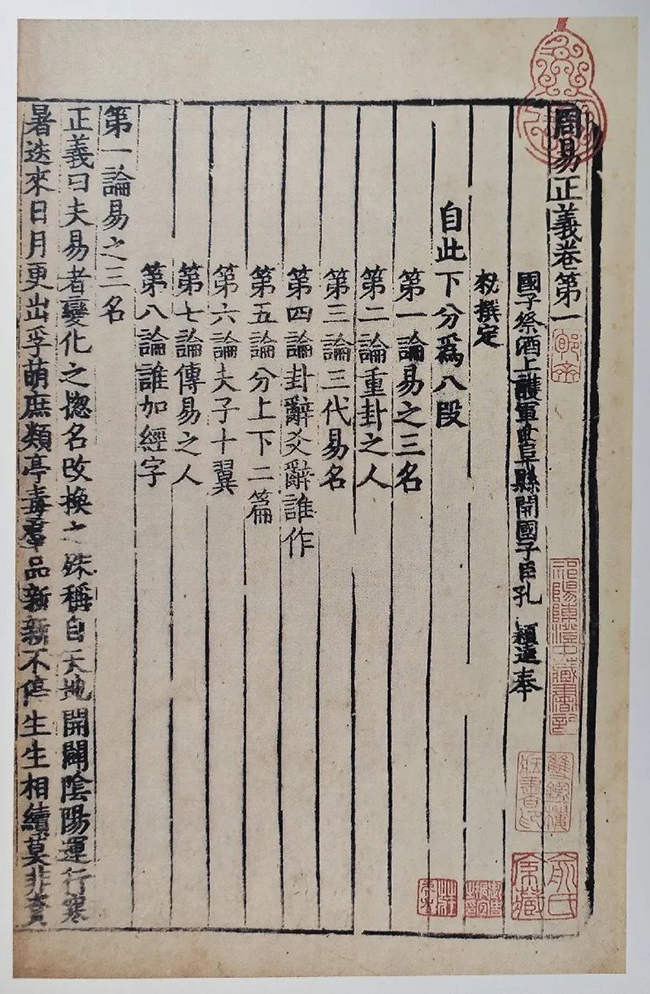 周易正義卷第一
國子祭酒上護軍曲阜縣開國子臣孔 穎達奉
勑撰定
自此下分爲八段
第一論易之三名
第二論重卦之人
第三論三代易名
第四論卦辭爻辭誰作
第五論分上下二篇
第六論夫子十翼
第七論傳易之人
第八論誰加經字
第一論易之三名
正義曰夫易者變化之揔名改換之殊稱自天地開闢陰陽運行寒
暑迭來日月更出孚萌庶類亭毒羣品新新不停生生相續莫非資
祁陽陳澄中藏書記
俞氏
家藏